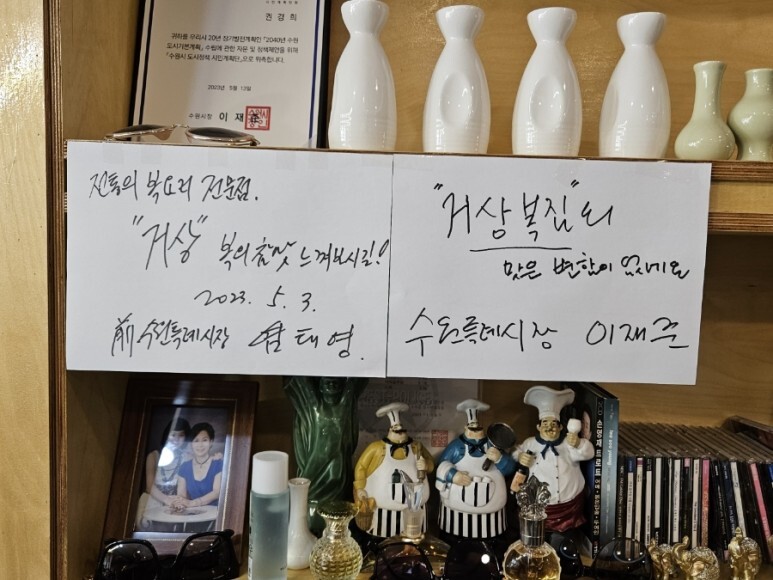 권경희
귀하를 우리시 20년 장기발전계획인 「2040년 수원
도시기본계획」 수립에 관한 자문 및 정책제안을 위해
「수원시 도시정책 시민계획단」으로 위촉합니다.
2023년 5월 13일
수원시장 이재준
전통의 복요리 전문점.
"거상" 복의 참맛 느껴보시길!
2023. 5. 3.
前 수원특례시장 염태영.
"거상복집"의
맛은 변함이 없네요
수원특례시장 이재준
손영재 트로트